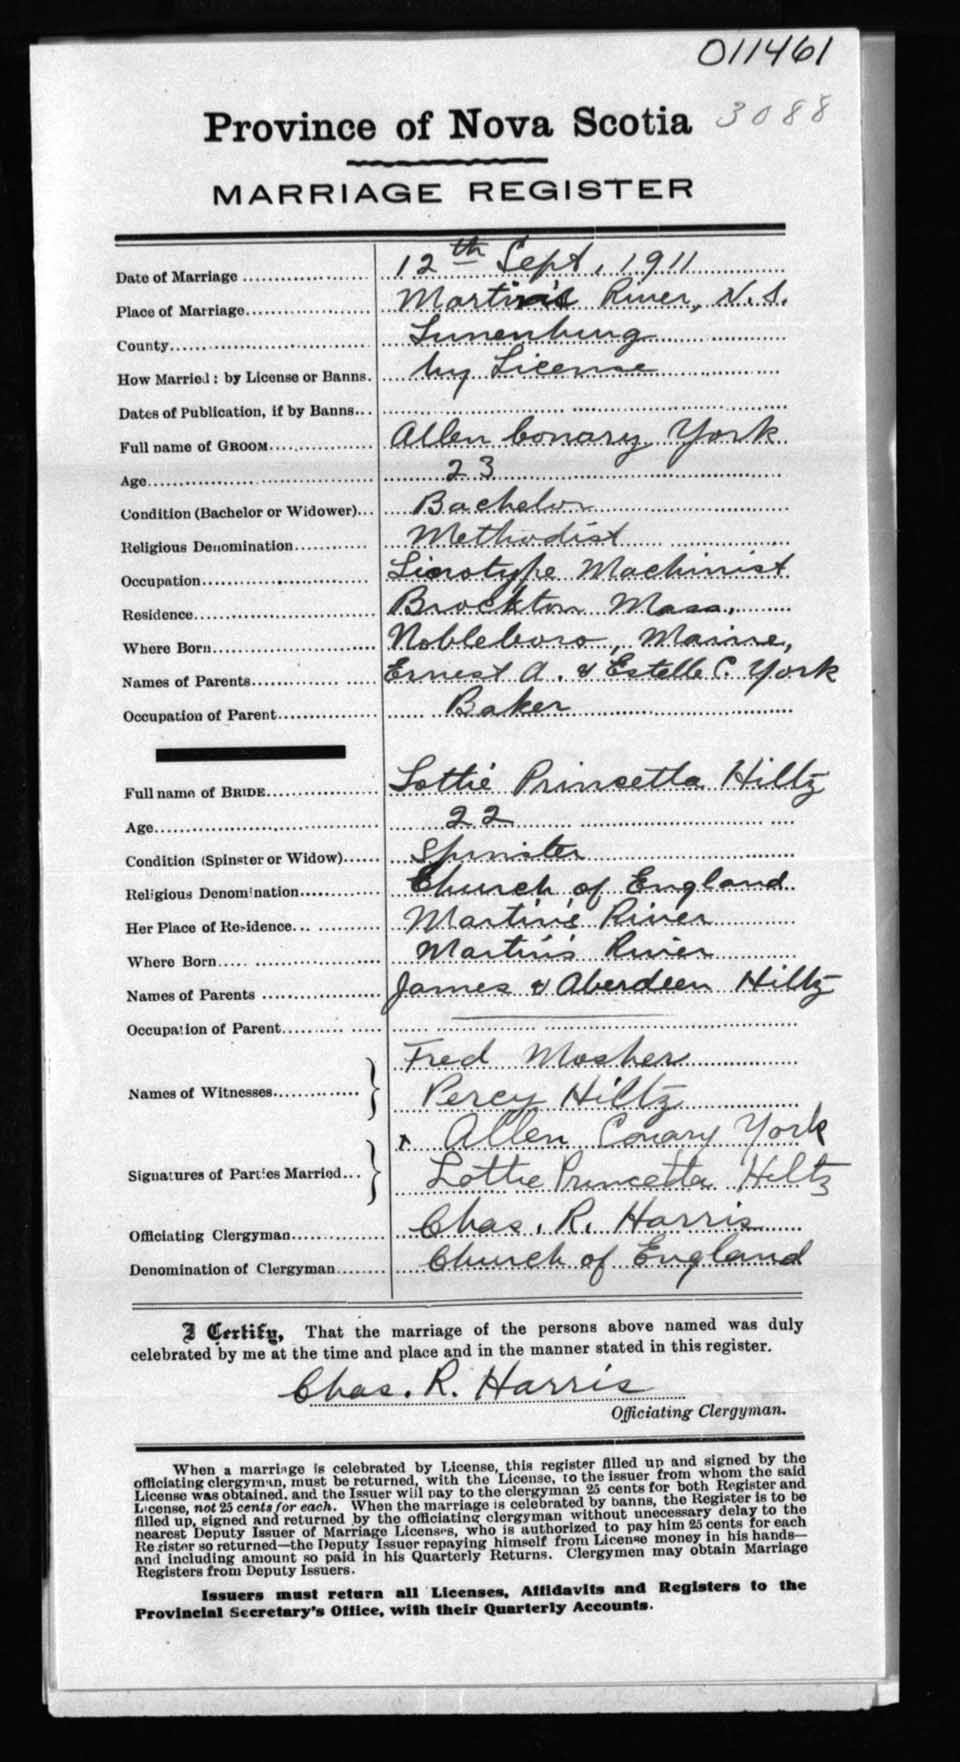 011461
Province of Nova Scotia 3088
MARRIAGE REGISTER
Date of Marriage 12th Sept, 1911
Place of Marriage Martin's River, N.S.
County Lunenburg
How Married: by License or Banns. by License
Dates of Publication, if by Banns
Full name of GROOM Allen Conary York
Age 23
Condition (Bachelor or Widower) Bachelor
Religious Denomination Methodist
Occupation Linotype Machinist
Residence Brockton Mass.
Where Born Nobleboro, Maine,
Names of Parents Ernest A. & Estelle C. York
Occupation of Parent Baker
Full name of BRIDE Lottie Princetta Hiltz
Age 22
Condition (Spinster or Widow) Spinster
Religious Denomination Church of England
Her Place of Residence Martin's River
Where Born Martin's River
Names of Parents James & Aberdeen Hiltz
Occupation of Parent
Fred Mosher
Names of Witnesses
Percy Hiltz
x Allen Conary York
Signatures of Parties Married
Lottie Princetta Hiltz
Officiating Clergyman Chas. R. Harris
Denomination of Clergyman Church of England
I Certify, That the marriage of the persons above named was duly
celebrated by me at the time and place and in the manner stated in this register.
Chas. R. Harris
Officiating Clergyman.
When a marriage is celebrated by License, this register filled up and signed by the
officiating clergyman, must be returned, with the License, to the issuer from whom the said
License was obtained, and the Issuer will pay to the clergyman 25 cents for both Register and
License, not 25 cents for each. When the marriage is celebrated by banns, the Register is to be
filled up, signed and returned by the officiating clergyman without unnecessary delay to the
nearest Deputy Issuer of Marriage Licenses, who is authorized to pay him 25 cents for each
Register so returned—the Deputy Issuer repaying himself from License money in his hands—
and including amount so paid in his Quarterly Returns. Clergymen may obtain Marriage
Registers from Deputy Issuers.
Issuers must return all Licenses, Affidavits and Registers to the
Provincial Secretary's Office, with their Quarterly Accounts.